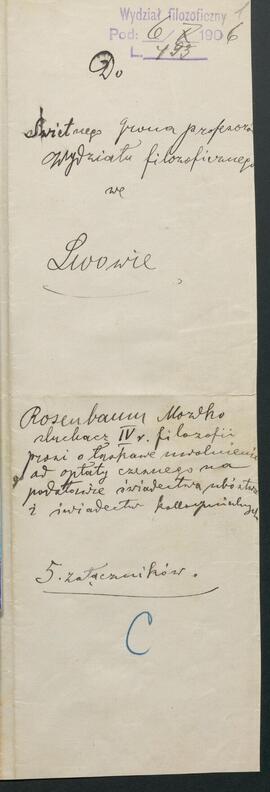 Wydział filozoficzny 1
Pod: 6/X 1906
L. 493
Do
Świetnego Grona profesorów
Wydziału filozoficznego
we
Lwowie
Rosenbaum Moszko
słuchacz IV r. filozofii
prosi o łaskawe uwolnienie
od opłaty czesnego na
podstawie świadectwa ubóstwa
i świadectw kollokwialnych
5. załączników.
C